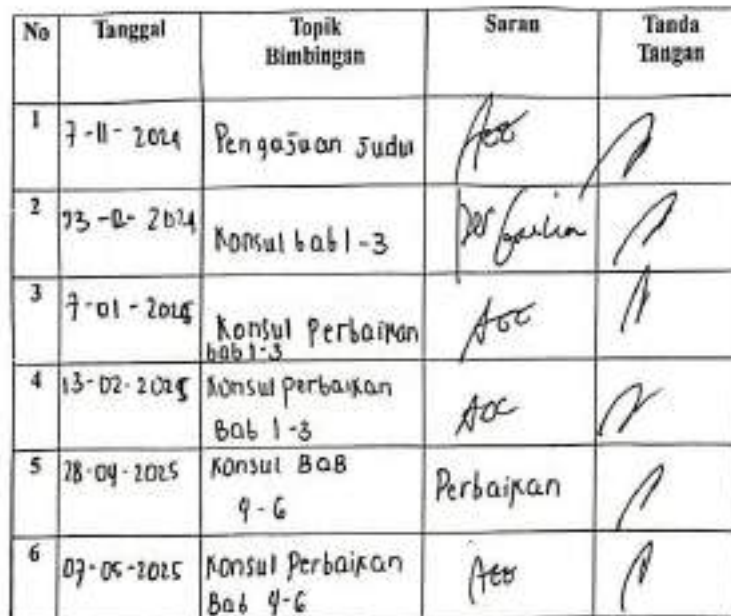 No Tanggal Topik Bimbingan Saran Tanda Tangan
1 7-11-2024 Pengajuan Judul Acc
2 -2024 Konsul bab 1-3
3 7-01-2025 Konsul Perbaikan bab 1-3 Acc
4 13-02-2025 Konsul perbaikan Bab 1-3 Acc
5 28-04-2025 Konsul BAB 4-6 Perbaikan
6 07-05-2025 Konsul Perbaikan Bab 4-6 Acc